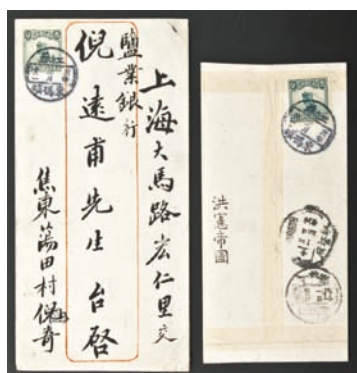 上海大馬路宏仁里交
鹽業銀行
倪遠甫先生台啓
焦東蕩田村倪寄
洪憲帝國